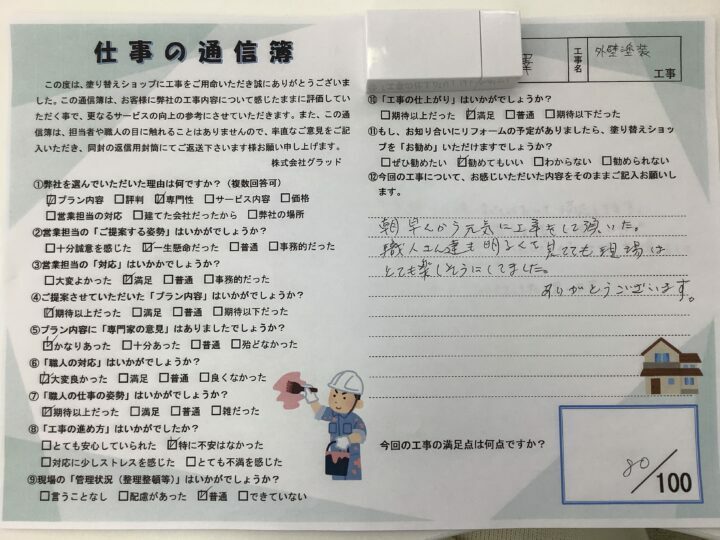 仕事の通信簿
この度は、塗り替えショップに工事をご用命いただき誠にありがとうございま
した。この通信簿は、お客様に弊社の工事内容について感じたままに評価してい
ただく事で、更なるサービスの向上の参考にさせていただきます。また、この通
信簿は、担当者や職人の目に触れることはありませんので、率直なご意見をご記
入いただき、同封の返信用封筒にてご返送下さいます様お願い申し上げます。
株式会社グラッド
①弊社を選んでいただいた理由は何ですか？（複数回答可）
☑プラン内容 □評判 ☑専門性 □サービス内容 □価格
□営業担当の対応 □建てた会社だったから □弊社の場所
②営業担当の「ご提案する姿勢」はいかがでしょうか？
□十分誠意を感じた ☑一生懸命だった □普通 □事務的だった
③営業担当の「対応」はいかかでしょうか？
□大変よかった ☑満足 □普通 □事務的だった
④ご提案させていただいた「プラン内容」はいかがでしょうか？
☑期待以上だった □満足 □普通 □期待以下だった
⑤プラン内容に「専門家の意見」はありましたでしょうか？
☑かなりあった □十分あった □普通 □殆どなかった
⑥「職人の対応」はいかがでしょうか？
☑大変良かった □満足 □普通 □良くなかった
⑦「職人の仕事の姿勢」はいかがでしょうか？
☑期待以上だった □満足 □普通 □雑だった
⑧「工事の進め方」はいかがでしたか？
□とても安心していられた ☑特に不安はなかった
□対応に少しストレスを感じた □とても不満を感じた
⑨現場の「管理状況（整理整頓等）」はいかがでしょうか？
□言うことなし □配慮があった ☑普通 □できていない
工事名 外壁塗装 工事
⑩「工事の仕上がり」はいかがでしょうか？
□期待以上だった ☑満足 □普通 □期待以下だった
⑪もし、お知り合いにリフォームの予定がありましたら、塗り替えショッ
プを「お勧め」いただけますでしょうか？
□ぜひ勧めたい ☑勧めてもいい □わからない □勧められない
⑫今回の工事について、お感じいただいた内容をそのままご記入お願いし
ます。
朝早くから元気に工事をして頂いた。
職人さん達も明るくて見てても現場は
とても楽しそうにしてました。
ありがとうございます。
今回の工事の満足点は何点ですか？
80/100